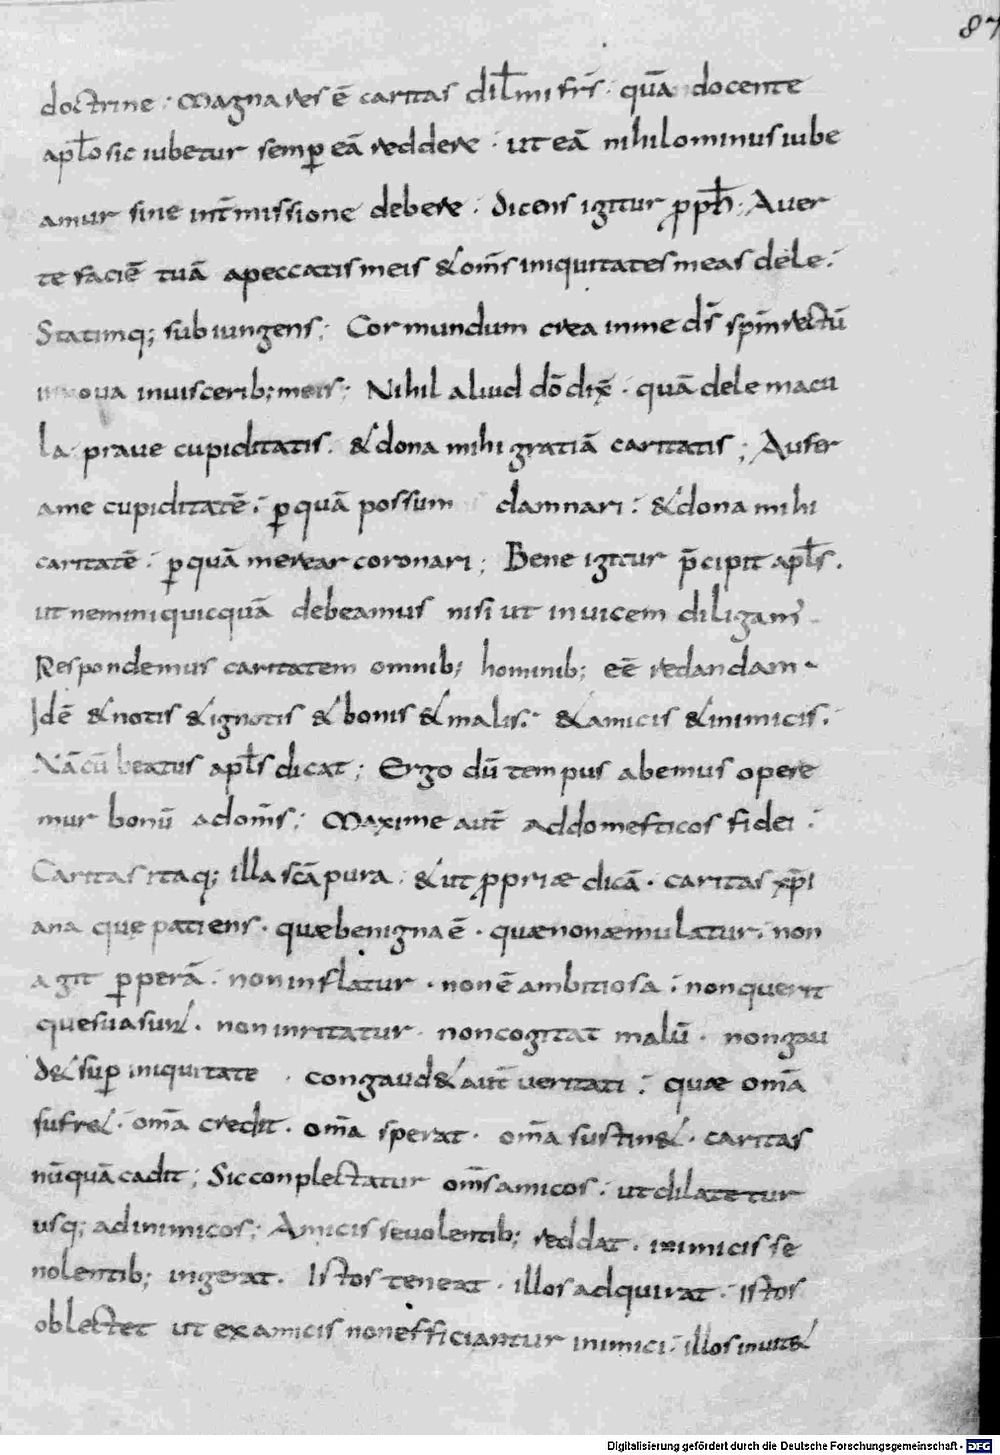 87
doctrine · Magna res ē caritas dil̄mi frs̄ · quā docente
apl̄o sic iubetur semp̱ eā reddere · ut eā nihilominus iube
amur sine int̄missione debere · dicens igitur ꝓph̄ · Auer
te faciē tuā apeccatis meis & om̄s iniquitates meas dele ·
Statimq; subiungens; Cor mundum crea inme ds̄ sp̄m rectū
innoua inuiscerib; meis; Nihil aliud dō dix̄ · quā dele macu
la praue cupiditatis. & dona mihi gratiā caritatis; Aufer
ame cupiditatē · ꝑquā possum damnari · & dona mihi
caritatē · ꝑquā merear coronari; Bene igitur p̄cipit apl̄s ·
ut nemini quicquā debeamus nisi ut inuicem diligam̄
Respondemus caritatem omnib; hominib; eē redandam
Idē & notis & ignotis & bonis & malis · & amicis & inimicis ·
Nā cū beatus apl̄s dicat; Ergo dū tempus abemus opere
mur bonū ad om̄s; Maxime aut̄ ad domesticos fidei ·
Caritas itaq; illa sc̄a pura · & ut ꝓpriæ dicā · caritas xp̄i
ana que patiens · quæ benigna ē · quæ non æmulatur · non
agit ꝑperā · non inflatur · non ē ambitiosa · non querit
que sua sun& · non inritatur · non cogitat malū · non gau
d& sup̱ iniquitate · congaud& aut̄ ueritati · quæ om̄a
sufre& · om̄a credit · om̄a sperat · om̄a sustin& · caritas
nūquā cadit; Sic conplectatur om̄s amicos · ut dilatetur
usq; ad inimicos; Amicis seuolentib; reddat · inimicis se
nolentib; ingerat. Istos teneat · illos adquirat · Istos
oblectet ut ex amicis non efficiantur inimici · illos inuit&
Digitalisierung gefördert durch die Deutsche Forschungsgemeinschaft - DFG